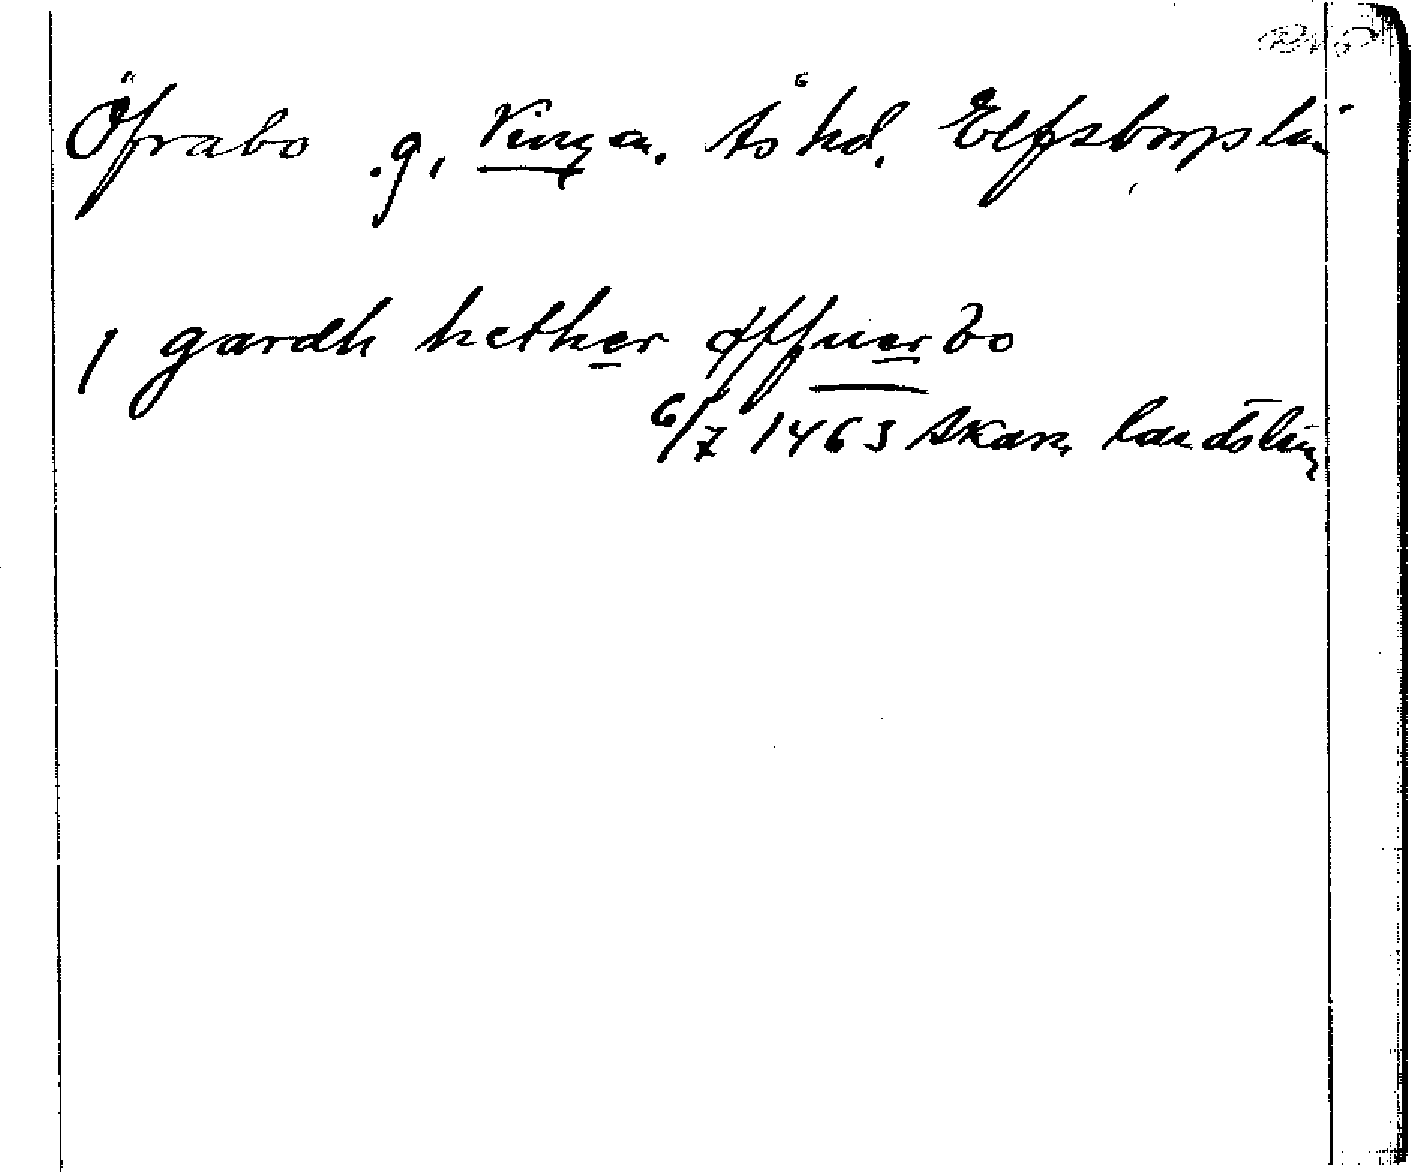 Öfrabo g. Vinga. Ås hd. Elfsborgs län
1 gardh hether øffuerbo
6/7 1463 Skara landsting